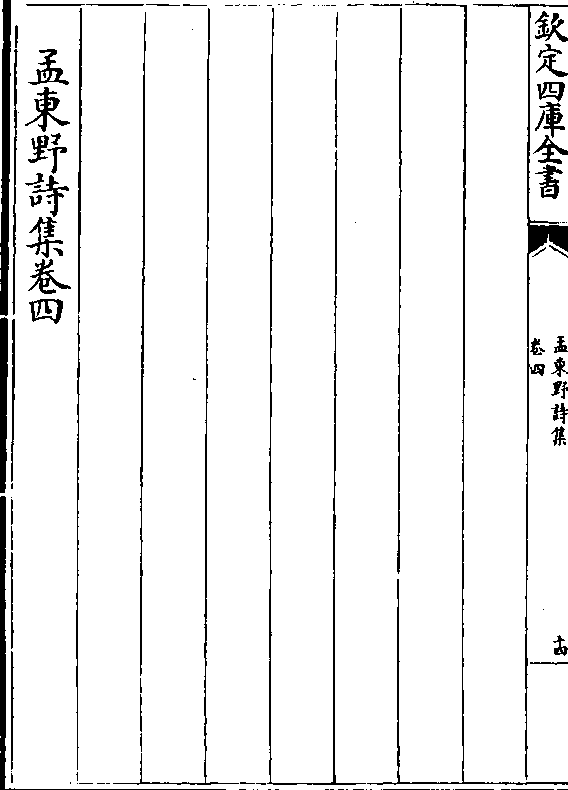 欽定四庫全書
孟東野詩集
卷四
十四
孟東野詩集卷四